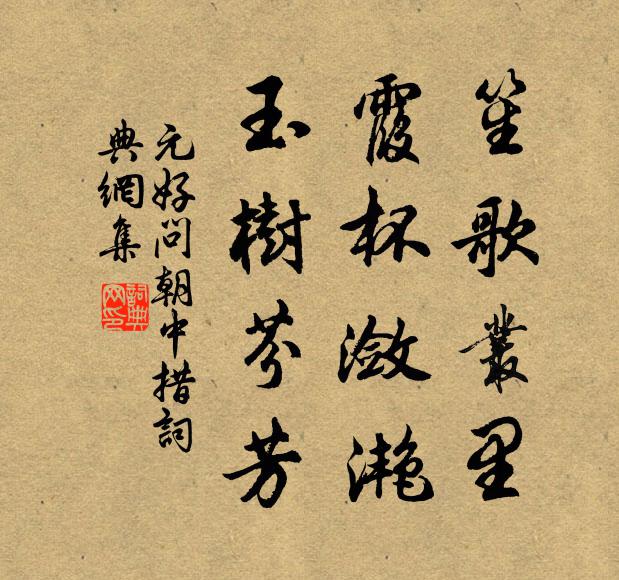 笙歌叢里
霞杯瀲灧
玉樹芬芳
元好問朝中措詞
典網集
詞典
网印